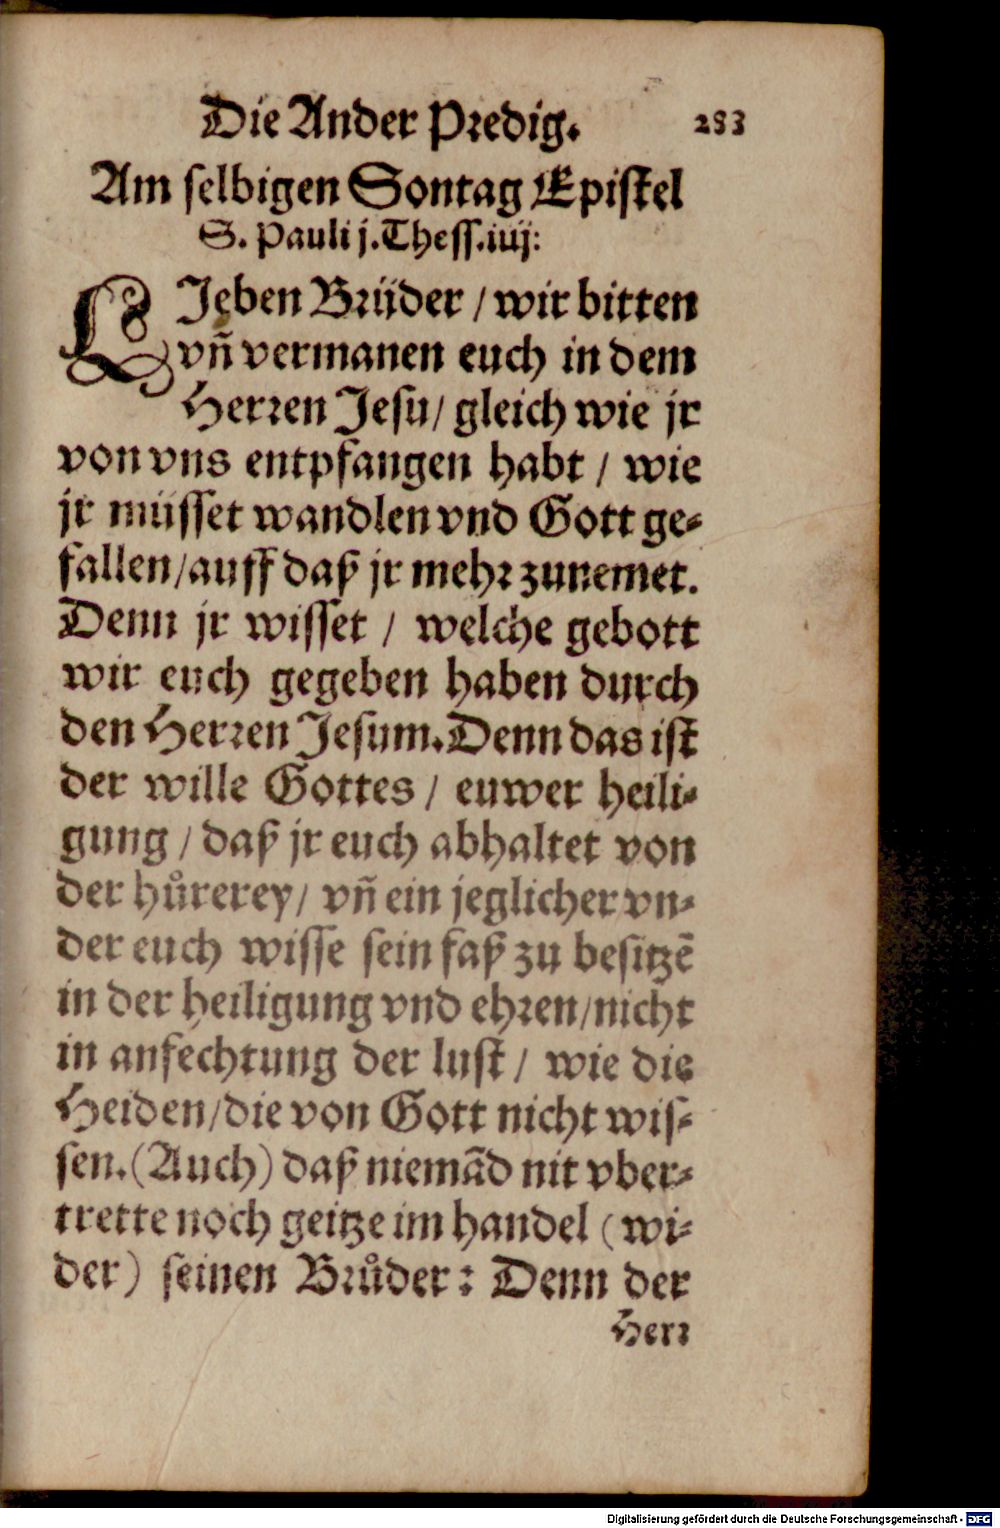 Die Ander Predig. 283
Am selbigen Sontag Epistel
S. Pauli j. Thess. iiij:
LIeben Brüder / wir bitten
vñ vermanen euch in dem
Herren Jesu / gleich wie jr
von vns entpfangen habt / wie
jr müsset wandlen vnd Gott ge-
fallen / auff daß jr mehr zunemet.
Denn jr wisset / welche gebott
wir euch gegeben haben durch
den Herren Jesum. Denn das ist
der wille Gottes / euwer heili-
gung / daß jr euch abhaltet von
der hůrerey / vñ ein jeglicher vn-
der euch wisse sein faß zu besitzẽ
in der heiligung vnd ehren / nicht
in anfechtung der lust / wie die
Heiden / die von Gott nicht wis-
sen. (Auch) daß niemãd nit vber-
trette noch geitze im handel (wi-
der) seinen Brůder: Denn der
Herr
Digitalisierung gefördert durch die Deutsche Forschungsgemeinschaft - DFG